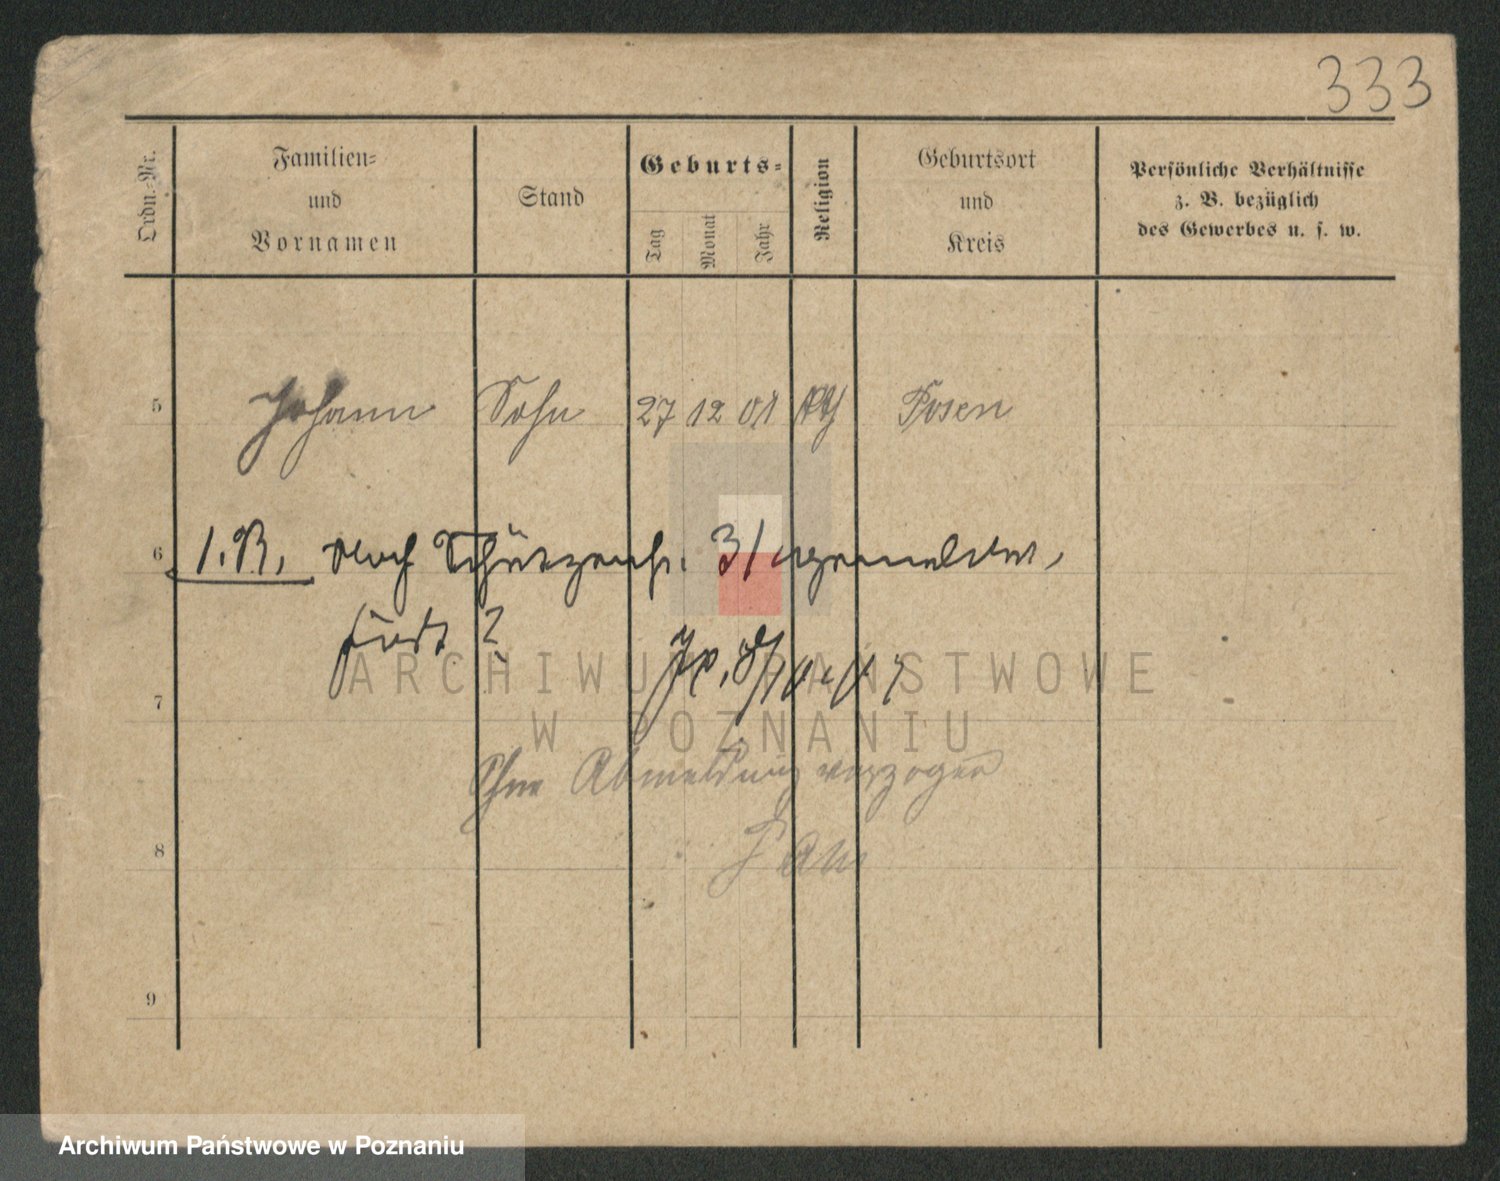 333
Ordn.-Nr.
Familien-
und
Vornamen
Stand
Geburts-
Tag
Monat
Jahr
Religion
Geburtsort
und
Kreis
Persönliche Verhältnisse
z. B. bezüglich
des Gewerbes u. s. w.
5 Johann Sohn 27 12 01 Posen
6 I. R. Nach Schützenstr. 31
7
Ohne Abmeldung verzogen
8
9
ARCHIWUM PAŃSTWOWE
W POZNANIU
Archiwum Państwowe w Poznaniu